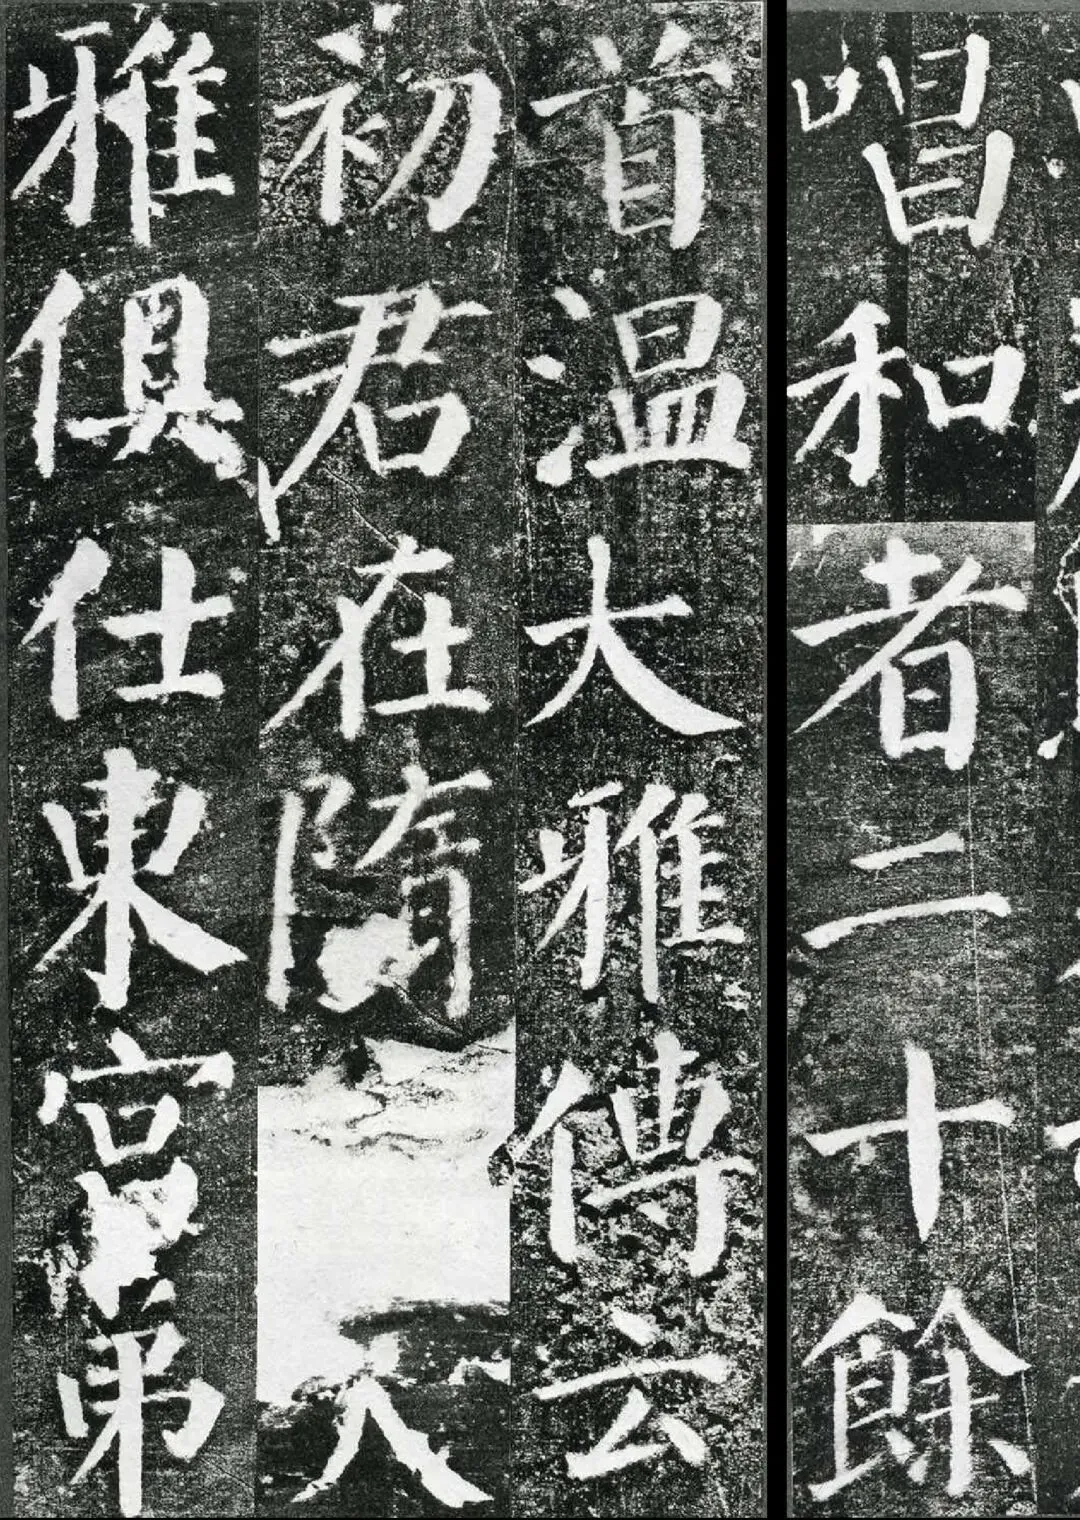 唱和者二十餘
首溫大雅傳云
初君在隋大
雅俱仕東宮弟